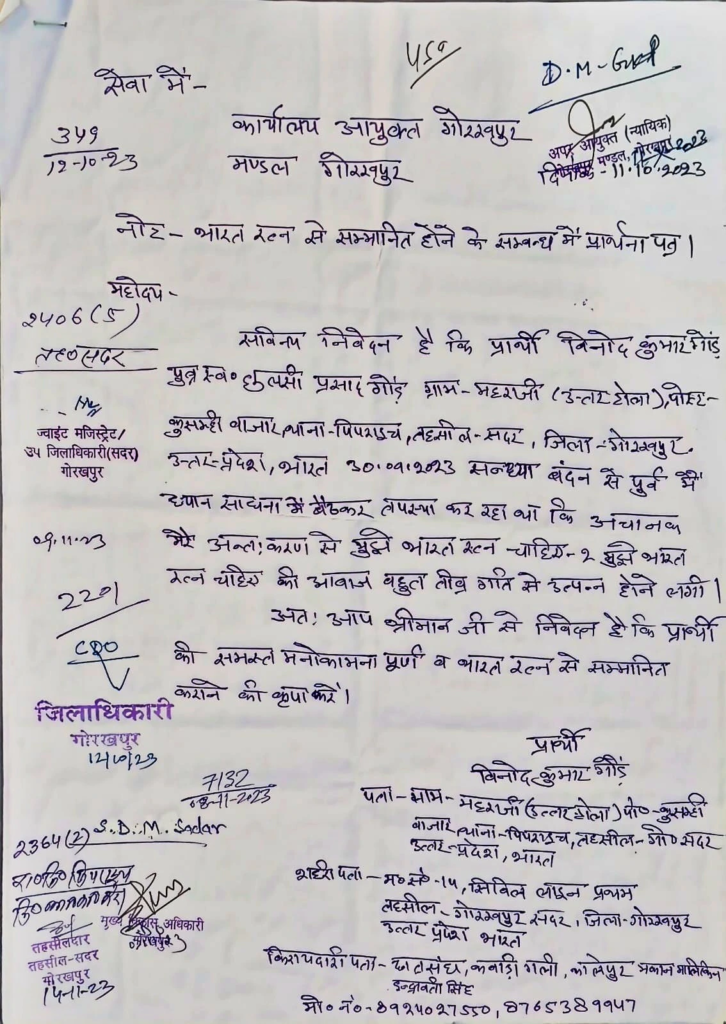 450
D.M-Gkp
सेवा में-
कार्यालय आयुक्त गोरखपुर
मण्डल गोरखपुर
349
12-10-23
अपर आयुक्त (न्यायिक)
गोरखपुर मण्डल, गोरखपुर
दिनांक-11.10.2023
नोट- भारत रत्न से सम्मानित होने के सम्बन्ध में प्रार्थना पत्र।
महोदय-
2406(5)
तह०सदर
ज्वाईट मजिस्ट्रेट/
उप जिलाधिकारी(सदर)
गोरखपुर
09.11.23
2201
CDO
जिलाधिकारी
गोरखपुर
12/10/23
सविनय निवेदन है कि प्रार्थी विनोद कुमार गौंड़
पुत्र स्व० तुलसी प्रसाद गौंड़ ग्राम-महराजी (उत्तर टोला), पोस्ट-
कुसम्ही बाजार, थाना-पिपराइच, तहसील-सदर, जिला-गोरखपुर.
उत्तर-प्रदेश, भारत 30.09.2023 सन्ध्या बंदन से पुर्व में
ध्यान साधना में बैठकर तपस्या कर रहा था कि अचानक
मेरे अन्त:करण से मुझे भारत रत्न-चाहिए-२ मुझे भारत
रत्न चाहिए की आवाज बहुत तीव्र गति से उत्पन्न होने लगी।
अत: आप श्रीमान जी से निवेदन है कि प्रार्थी
की समस्त मनोकामना पुर्ण व भारत रत्न से सम्मानित
कराने की कृपा करें।
प्रार्थी
विनोद कुमार गौंड़
7132
08-11-2023
पता-ग्राम-महराजी(उत्तर टोला) पो०-कुसम्ही
बाजार, थाना-पिपराइच, तहसील-गो० सदर
उत्तर-प्रदेश, भारत
शहरी पता-म०सं०-14, सिविल लाइन प्रथम
तहसील-गोरखपुर सदर, जिला-गोरखपुर
उत्तर प्रदेश भारत
किरायदारी पता-छात्रसंघ, कबाड़ी गली, कालेपुर मकान मालिकिन
इन्द्रावती सिंह
मो० नं०-8924027550, 8765389947
2364(2) S.D.M. Sadar
मुख्य विकास अधिकारी
गोरखपुर
तहसीलदार
तहसील-सदर
गोरखपुर
14-11-23